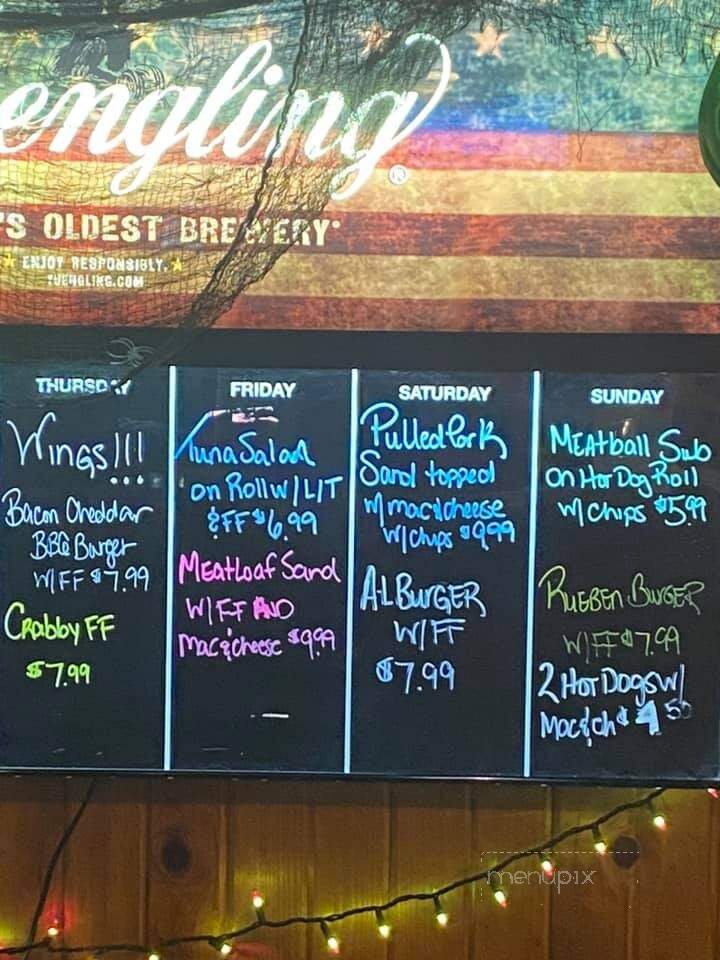 engling®
'S OLDEST BREWERY®
ENJOY RESPONSIBLY.
YUENGLING.COM
THURSDAY
Wings!!!
Bacon Cheddar
BBQ Burger
W/FF $7.99
Crabby FF
$7.99
FRIDAY
Tuna Salad
on Roll w/L/T
&FF $6.99
Meatloaf Sand
W/FF AND
Mac&cheese $9.99
SATURDAY
Pulled Pork
Sand topped
w/mac&cheese
w/chips $9.99
A-L BURGER
W/FF
$7.99
SUNDAY
MEAtball Sub
on Hot Dog Roll
w/chips $5.99
RUEBEN BURGER
W/FF $7.99
2 Hot Dogs w/
Mac&ch $4.50
menupix